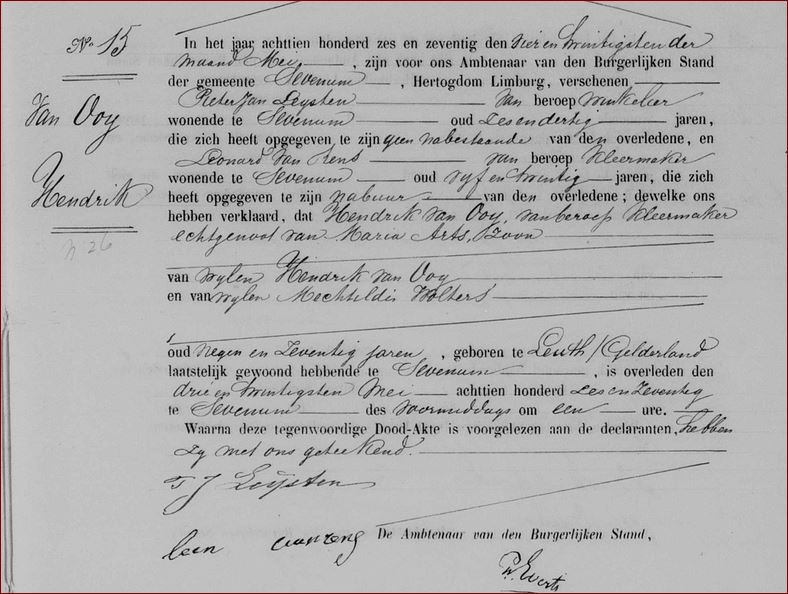 No 15
Van Ooy
Hendrik
N 26
In het jaar achttien honderd zes en zeventig den vier en twintigsten der
maand Mei, zijn voor ons Ambtenaar van den Burgerlijken Stand
der gemeente Sevenum, Hertogdom Limburg, verschenen
Pieter Jan Leysten van beroep winkelier
wonende te Sevenum oud zesendertig jaren,
die zich heeft opgegeven te zijn geen nabestaande van den overledene, en
Leonard van Rens van beroep kleermaker
wonende te Sevenum oud vyf en twintig jaren, die zich
heeft opgegeven te zijn nabuur van den overledene; dewelke ons
hebben verklaard, dat Hendrik van Ooy, van beroep kleermaker
echtgenoot van Maria Arts, zoon
van wylen Hendrik van Ooy
en van wylen Mechtildis Wolters
oud negen en zeventig jaren, geboren te Leuth / Gelderland
laatstelijk gewoond hebbende te Sevenum, is overleden den
drie en twintigsten Mei achttien honderd zes en zeventig
te Sevenum des voormiddags om een ure.
Waarna deze tegenwoordige Dood-Akte is voorgelezen aan de declaranten, hebben
zy met ons geteekend.
P J Leijsten
De Ambtenaar van den Burgerlijken Stand,
leen vanrens
Everts